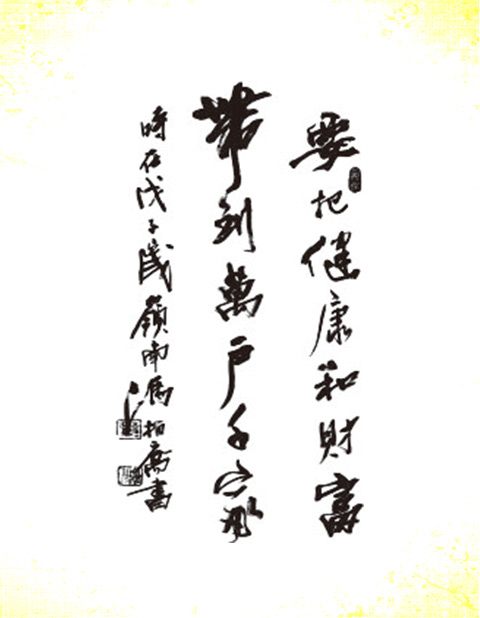 要把健康和財富
帶到萬户千家
時在戊子歲嶺南馬書